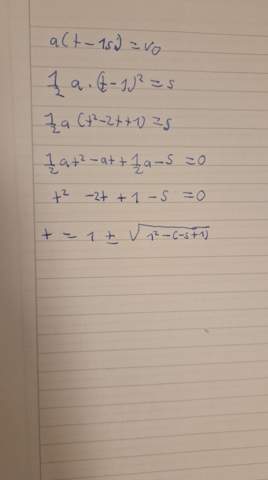 a(t-1s)=v0
1/2 a·(t-1)²=s
1/2 a(t²-2t+1)=s
1/2 at²-at+1/2 a-s=0
t² -2t +1 -s =0
t = 1 ± √(1²-(-s+1))